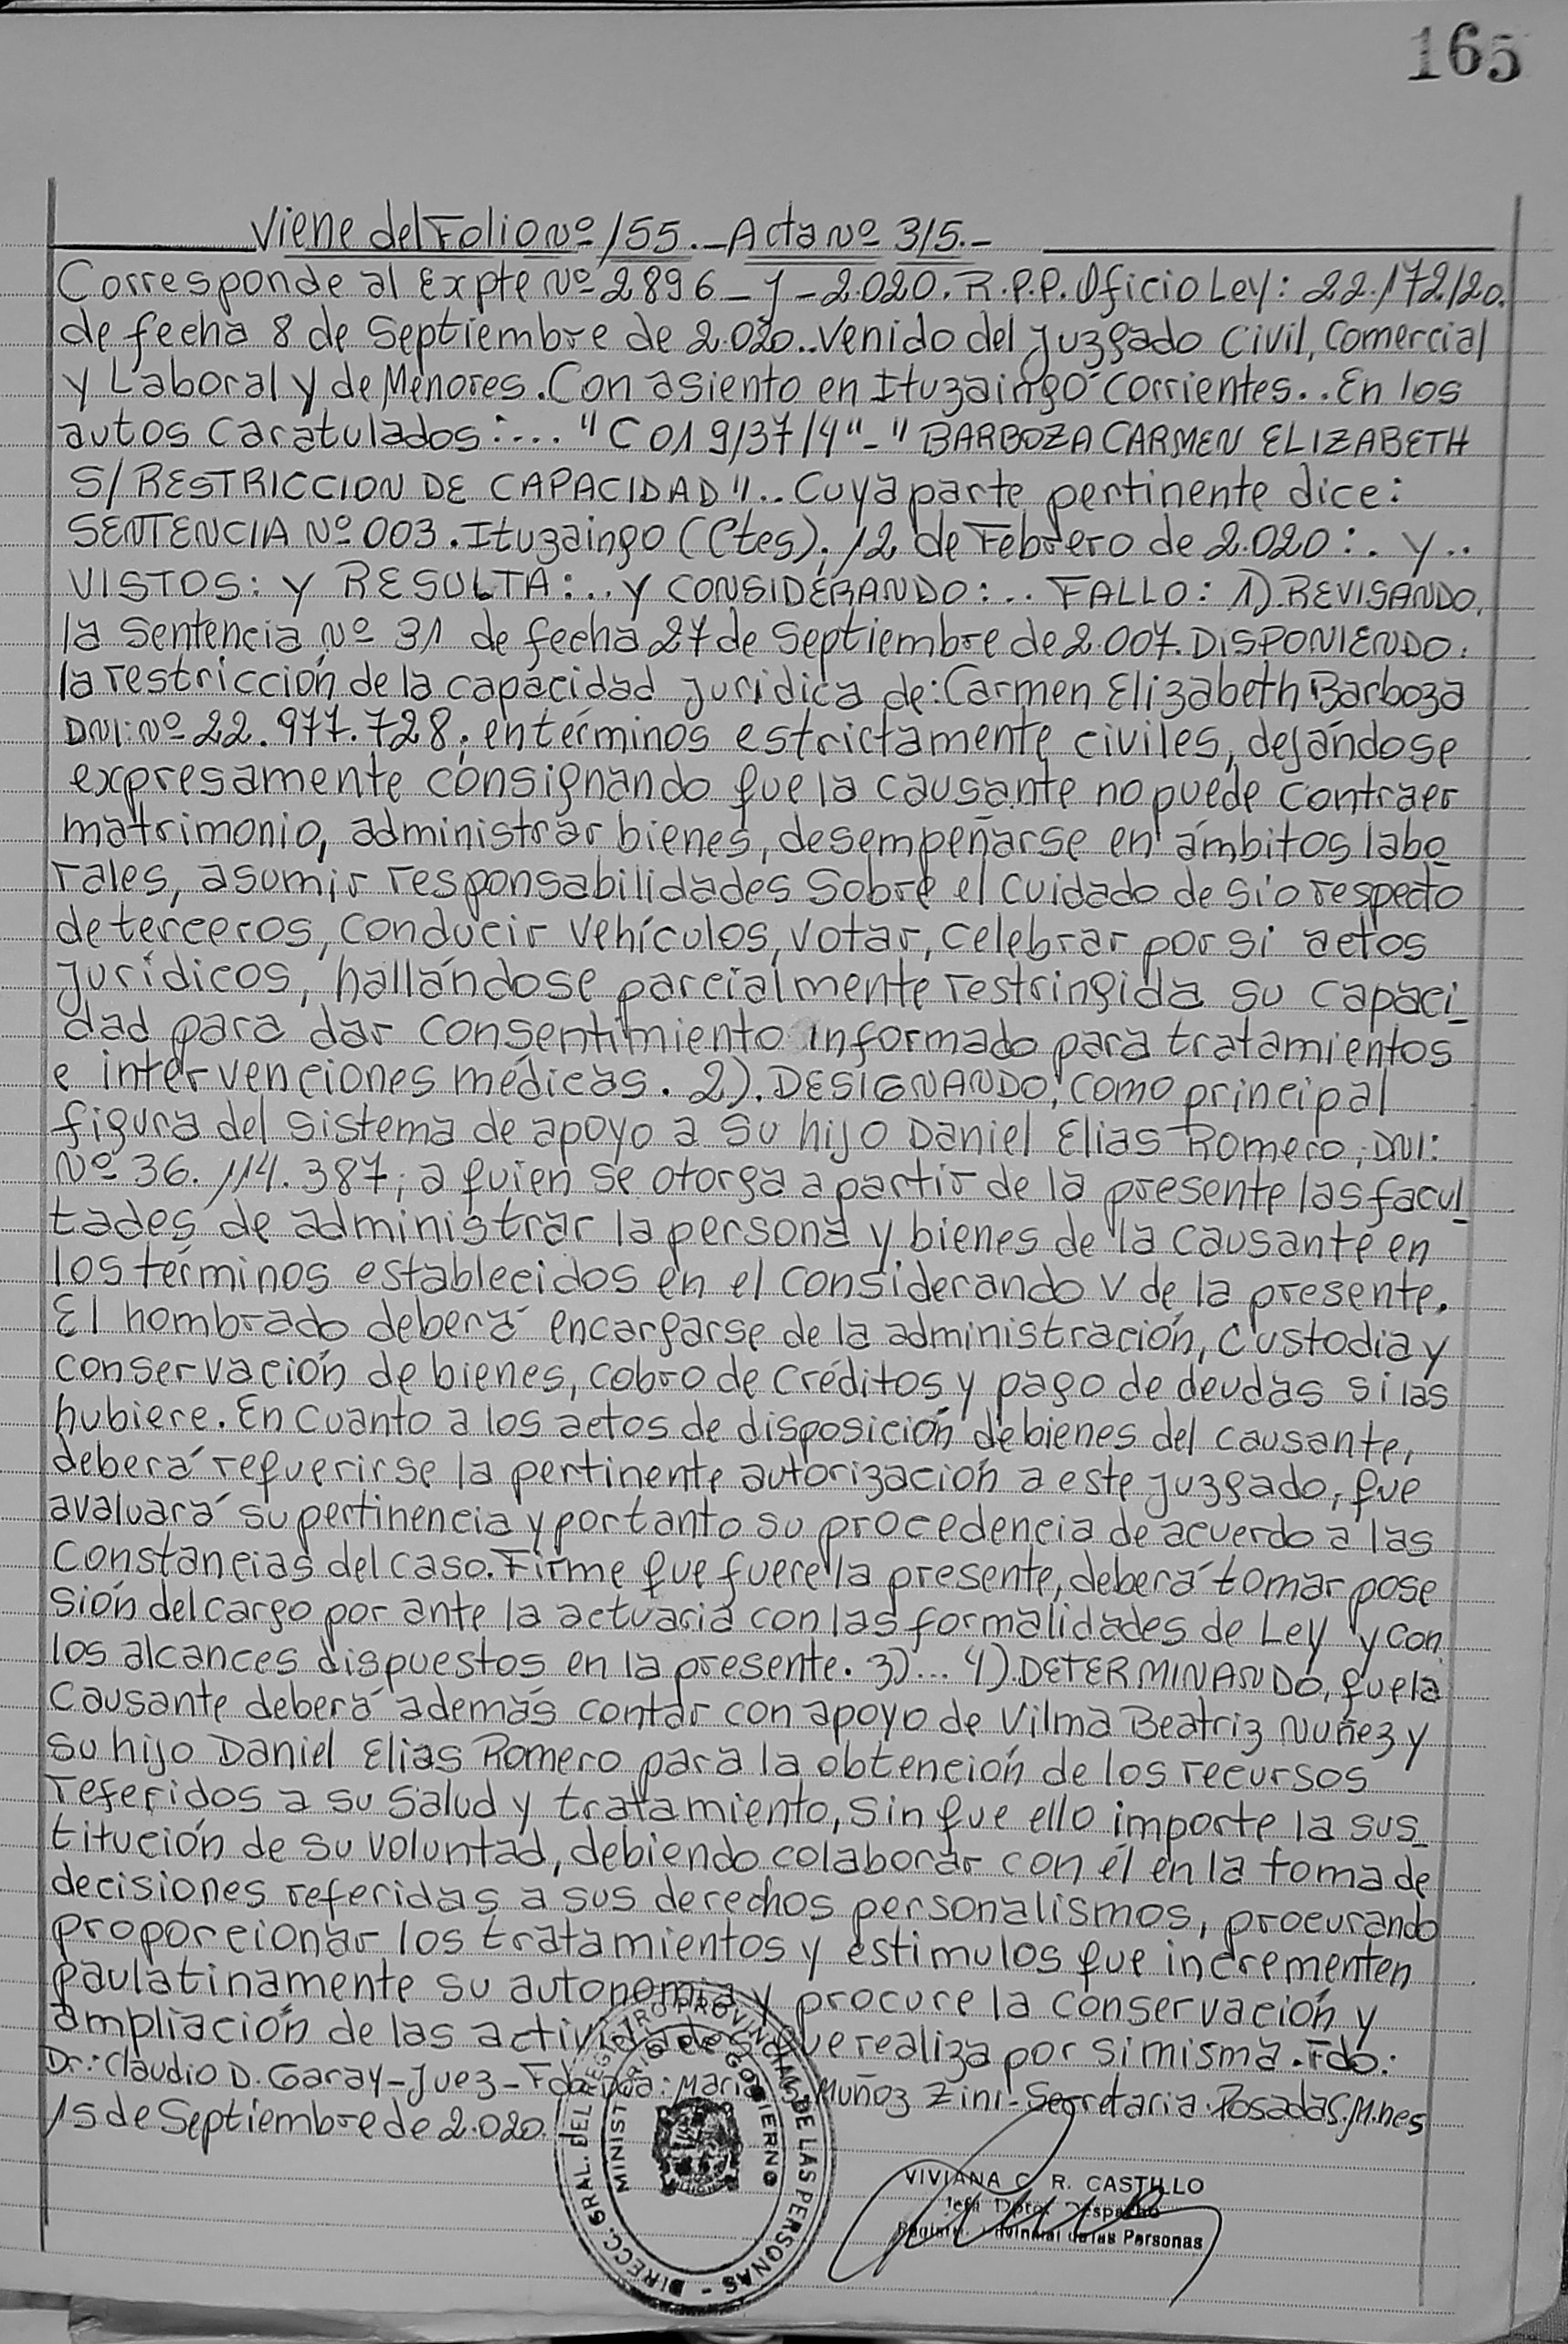 165
Viene del Folio Nº 155.- Acta Nº 315.-
Corresponde al Expte Nº 2896-J-2.020. R.P.P. Oficio Ley: 22.172/20.
de fecha 8 de Septiembre de 2.020.. Venido del Juzgado Civil, Comercial
y Laboral y de Menores. Con asiento en Ituzaingó Corrientes.. En los
autos Caratulados:... "C019/37/4"-" BARBOZA CARMEN ELIZABETH
S/ RESTRICCION DE CAPACIDAD".. Cuya parte pertinente dice:
SENTENCIA Nº 003. Ituzaingo (Ctes); 12 de Febrero de 2.020:. y..
VISTOS: y RESULTA:.. y CONSIDERANDO:.. FALLO: 1). REVISANDO,
la Sentencia Nº 31 de fecha 27 de Septiembre de 2.007. DISPONIENDO:
la restricción de la capacidad jurídica de: Carmen Elizabeth Barboza
DNI: Nº 22.977.728; en términos estrictamente civiles, dejándose
expresamente consignando que la causante no puede contraer
matrimonio, administrar bienes, desempeñarse en ámbitos labo
rales, asumir responsabilidades Sobre el cuidado de sí o respecto
de terceros, conducir vehículos, votar, celebrar por si actos
jurídicos, hallándose parcialmente restringida su capaci_
dad para dar consentimiento informado para tratamientos
e intervenciones médicas. 2). DESIGNANDO, como principal
figura del sistema de apoyo a su hijo Daniel Elias Romero; DNI:
Nº 36.114.387; a quien se otorga a partir de la presente las facul_
tades de administrar la persona y bienes de la causante en
los términos establecidos en el considerando V de la presente.
El nombrado deberá encargarse de la administración, custodia y
conservación de bienes, cobro de créditos y pago de deudas si las
hubiere. En cuanto a los actos de disposición de bienes del causante,
deberá requerirse la pertinente autorización a este juzgado, que
avaluará su pertinencia y por tanto su procedencia de acuerdo a las
Constancias del caso. Firme que fuere la presente, deberá tomar pose
sión del cargo por ante la actuaria con las formalidades de Ley y con
los alcances dispuestos en la presente. 3)... 4) DETERMINANDO, que la
causante deberá además contar con apoyo de Vilma Beatriz Nuñez y
su hijo Daniel Elias Romero para la obtención de los recursos
referidos a su salud y tratamiento, sin que ello importe la sus_
titución de su voluntad, debiendo colaborar con él en la toma de
decisiones referidas a sus derechos personalismos, procurando
proporcionar los tratamientos y estimulos que incrementen
paulatinamente su autonomía y procure la conservación y
ampliación de las actividades que realiza por si misma. Fdo:
Dr.: Claudio D. Garay-Juez-Fdo Dra: Maria S. Muñoz Zini-Secretaria. Posadas. M.nes
15 de Septiembre de 2.020.
DIRECC. GRAL. DEL REGISTRO PROVINCIAL DE LAS PERSONAS -
MINISTERIO DE GOBIERNO
VIVIANA C. R. CASTILLO
Jefa Dpto. Despacho
Registro Provincial de las Personas